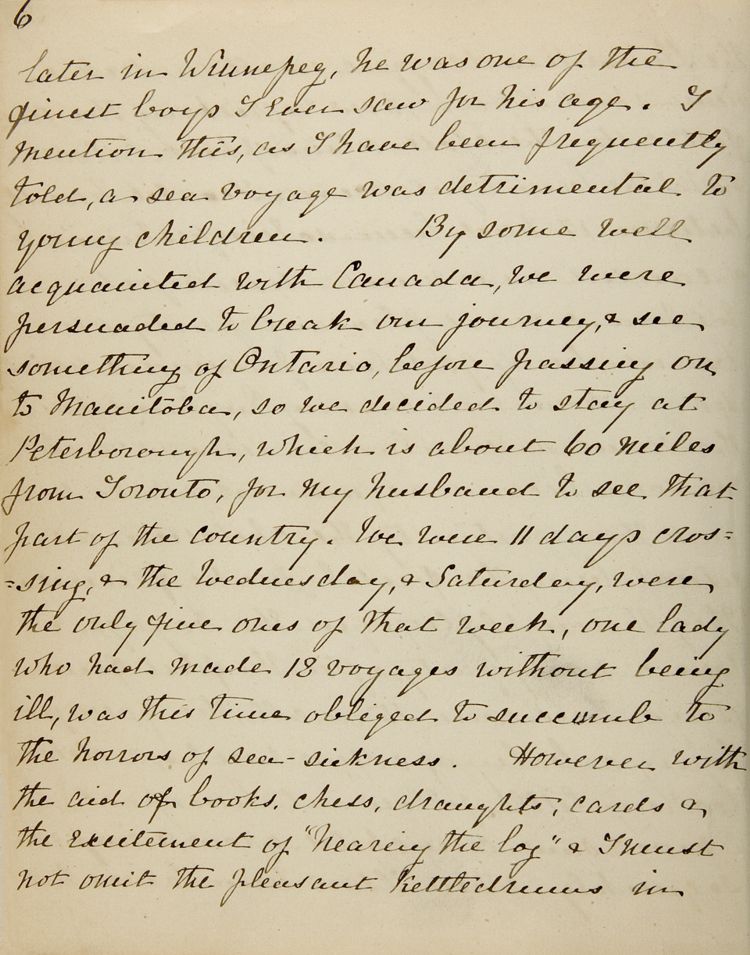 6
later in Winnepeg, he was one of the
finest boys I ever saw for his age. I
mention this, as I have been frequently
told, a sea voyage was detrimental to
young children. By some well
acquainted with Canada, we were
persuaded to break our journey, & see
something of Ontario, before passing on
to Manitoba, so we decided to stay at
Peterborough, which is about 60 miles
from Toronto, for my husband to see that
part of the country. We were 11 days cros=
=sing, & the Wednesday, & Saturday, were
the only fine ones of that week, one lady
who had made 18 voyages without being
ill, was this time obliged to succumb to
the horrors of sea-sickness. However with
the aid of books, chess, draughts, cards &
the excitement of "hearing the log" & I must
not omit the pleasant Kettledrums in